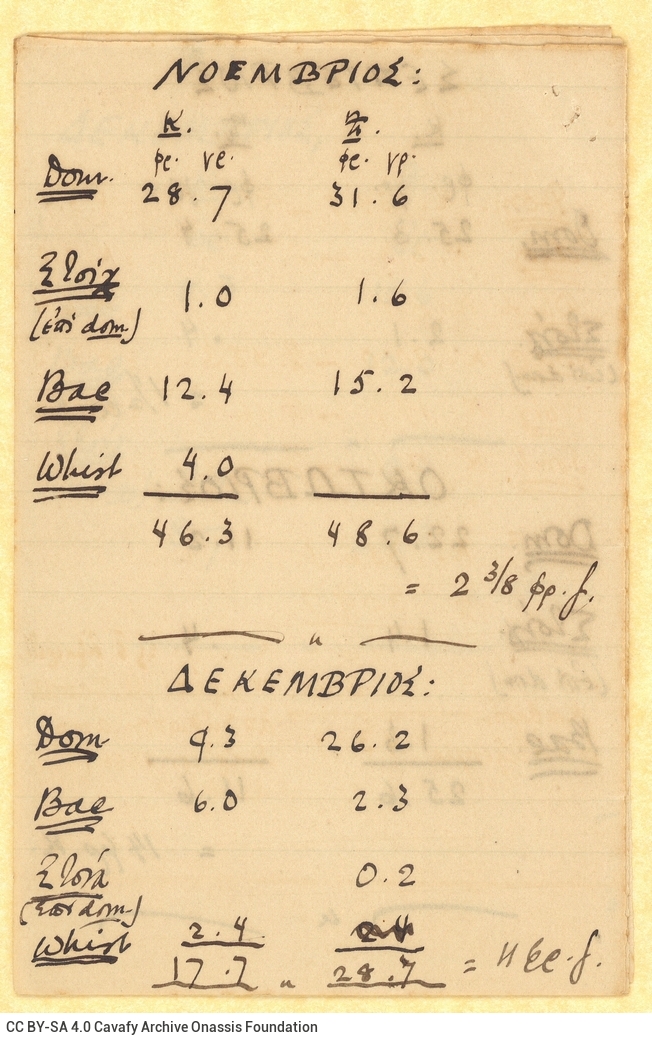 ΝΟΕΜΒΡΙΟΣ:
Κ. Π.
φρ. γρ. φρ. γρ.
Dom. 28.7 31.6
Στοίχ 1.0 1.6
(επί dom)
Bac 12.4 15.2
Whist 4.0
46.3 48.6
= 2 3/8 φρ. f.
"
ΔΕΚΕΜΒΡΙΟΣ:
Dom 9.3 26.2
Bac 6.0 2.3
Στοιχ 0.2
(επί dom)
Whist 2.4
17.7 " 28.7 = 11 φρ. f.
CC BY-SA 4.0 Cavafy Archive Onassis Foundation